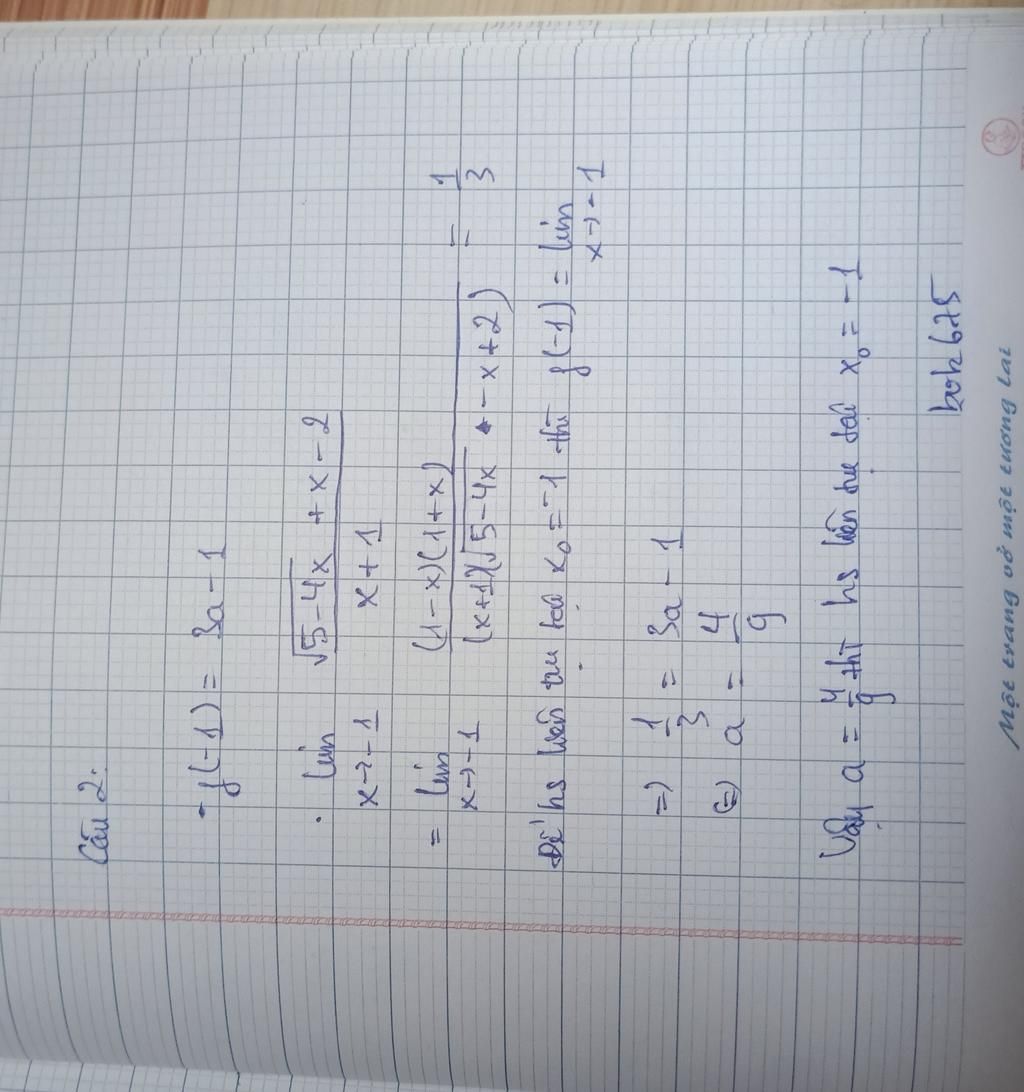 Câu 2:
• f(-1) = 3a - 1
• lim x->-1 (√(5-4x) + x - 2)/(x + 1)
= lim x->-1 ((1-x)(1+x))/((x+1)(√(5-4x) - x + 2)) = 1/3
Để hs liên tục tại x₀ = -1 thì f(-1) = lim x->-1
=> 1/3 = 3a - 1
(=) a = 4/9
Vậy a = 4/9 thì hs liên tục tại x₀ = -1
Một trang vở một tương lai